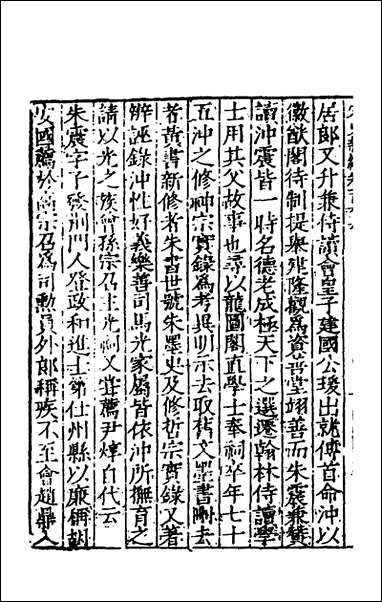 居郎又升兼侍讀會皇子建國公瑗出就傅首命沖以
徽猷閣待制提舉建隆觀爲資善堂翊善而朱震兼贊
讀沖震皆一時名德老成極天下之選遷翰林侍讀學
士用其父故事也尋以龍圖閣直學士奉祠卒年七十
五沖之修神宗實錄爲考異明示去取舊文墨書刪去
者黃書新修者朱書世號朱墨史及修哲宗實錄又著
辨誣錄沖性好義樂善司馬光家屬皆依沖所撫育之
請以光之族曾孫宗召主光祠又甞薦尹焞自代云
朱震字子發荆門人登政和進士第仕州縣以廉稱胡
安國薦於高宗召爲司勳員外郎稱疾不至會趙鼎入